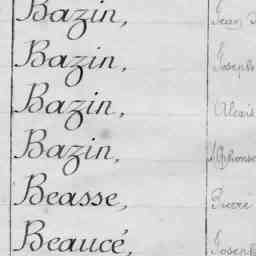 Bazin, Jean
Bazin, Joseph
Bazin, Alexis
Bazin, Alphonse
Beasse, Pierre
Beaucé, Joseph